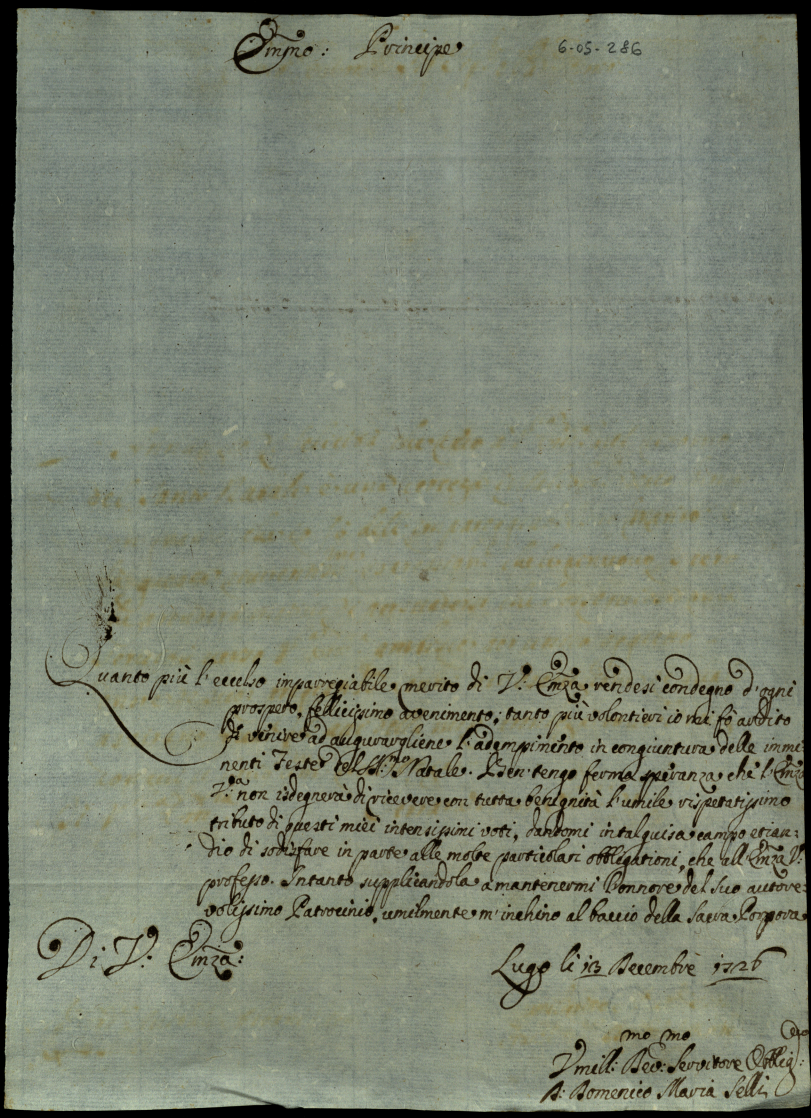 Emmo: Principe 6-05-286
Quanto più l'eccelso impareggiabile merito di V: Emza rendesi condegno d'ogni
prospero, fellicissimo avenimento; tanto più volontieri io mi fò ardito
di venire ad auguraregliene l'adempimento in congiuntura delle immi-
nenti Feste del SS.mo Natale. Ben tengo ferma speranza che l'Emza
V:a non isdegnerà di ricevere con tutta benignità l'umile rispetatissimo
tributo di questi miei intensissimi voti, dandomi in tal guisa campo etian-
dio di sodisfare in parte alle molte particolari obbligationi, che all'Emza V:
professo. Intanto supplicandola a mantenermi l'onnore del suo autore-
volissimo Patrocinio, umilmente m'inchino al baccio della Sacra Porpora
Di V: Emza:
Lugo li 13 Decembre 1726
Umill:mo Dev:mo Servitore Obblig:
D: Domenico Maria Selli